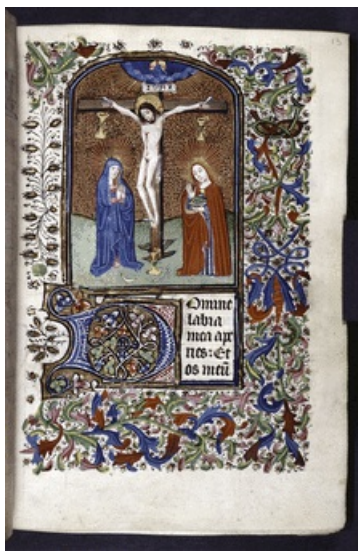 13
INRI
Domine
labia
mea ape
ries: Et
os meū